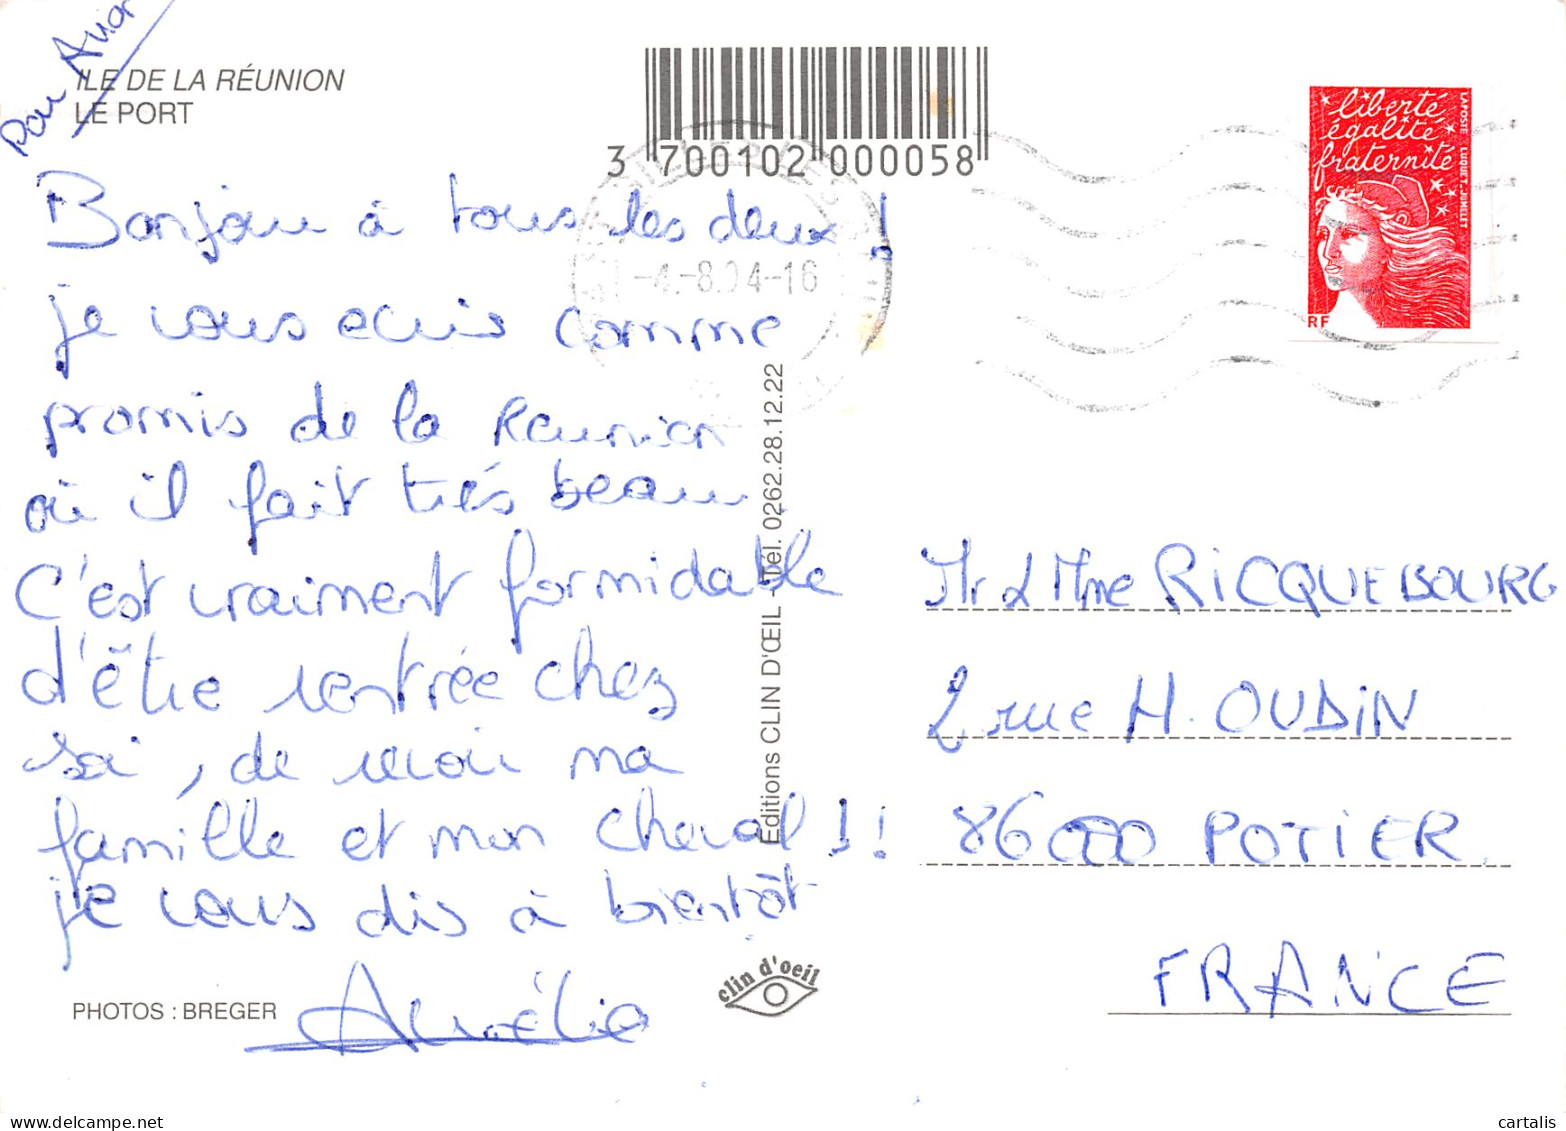 Par Avion
ILE DE LA RÉUNION
LE PORT
3 700102 000058
liberté
égalité
fraternité
LA POSTE LUQUET-JUMELET
RF
-4.-8.04-16
Bonjour à tous les deux !
je vous ecris comme
promis de la Reunion
où il fait très beau.
C'est vraiment formidable
d'être rentrée chez
soi, de revoir ma
famille et mon cheval !!
je vous dis à bientôt
Aurélie
Editions CLIN D'ŒIL - Tél. 0262.28.12.22
Mr & Mme RICQUEBOURG
2 rue H. OUDIN
86000 POTIER
FRANCE
PHOTOS : BREGER
clin d'oeil
cartalis